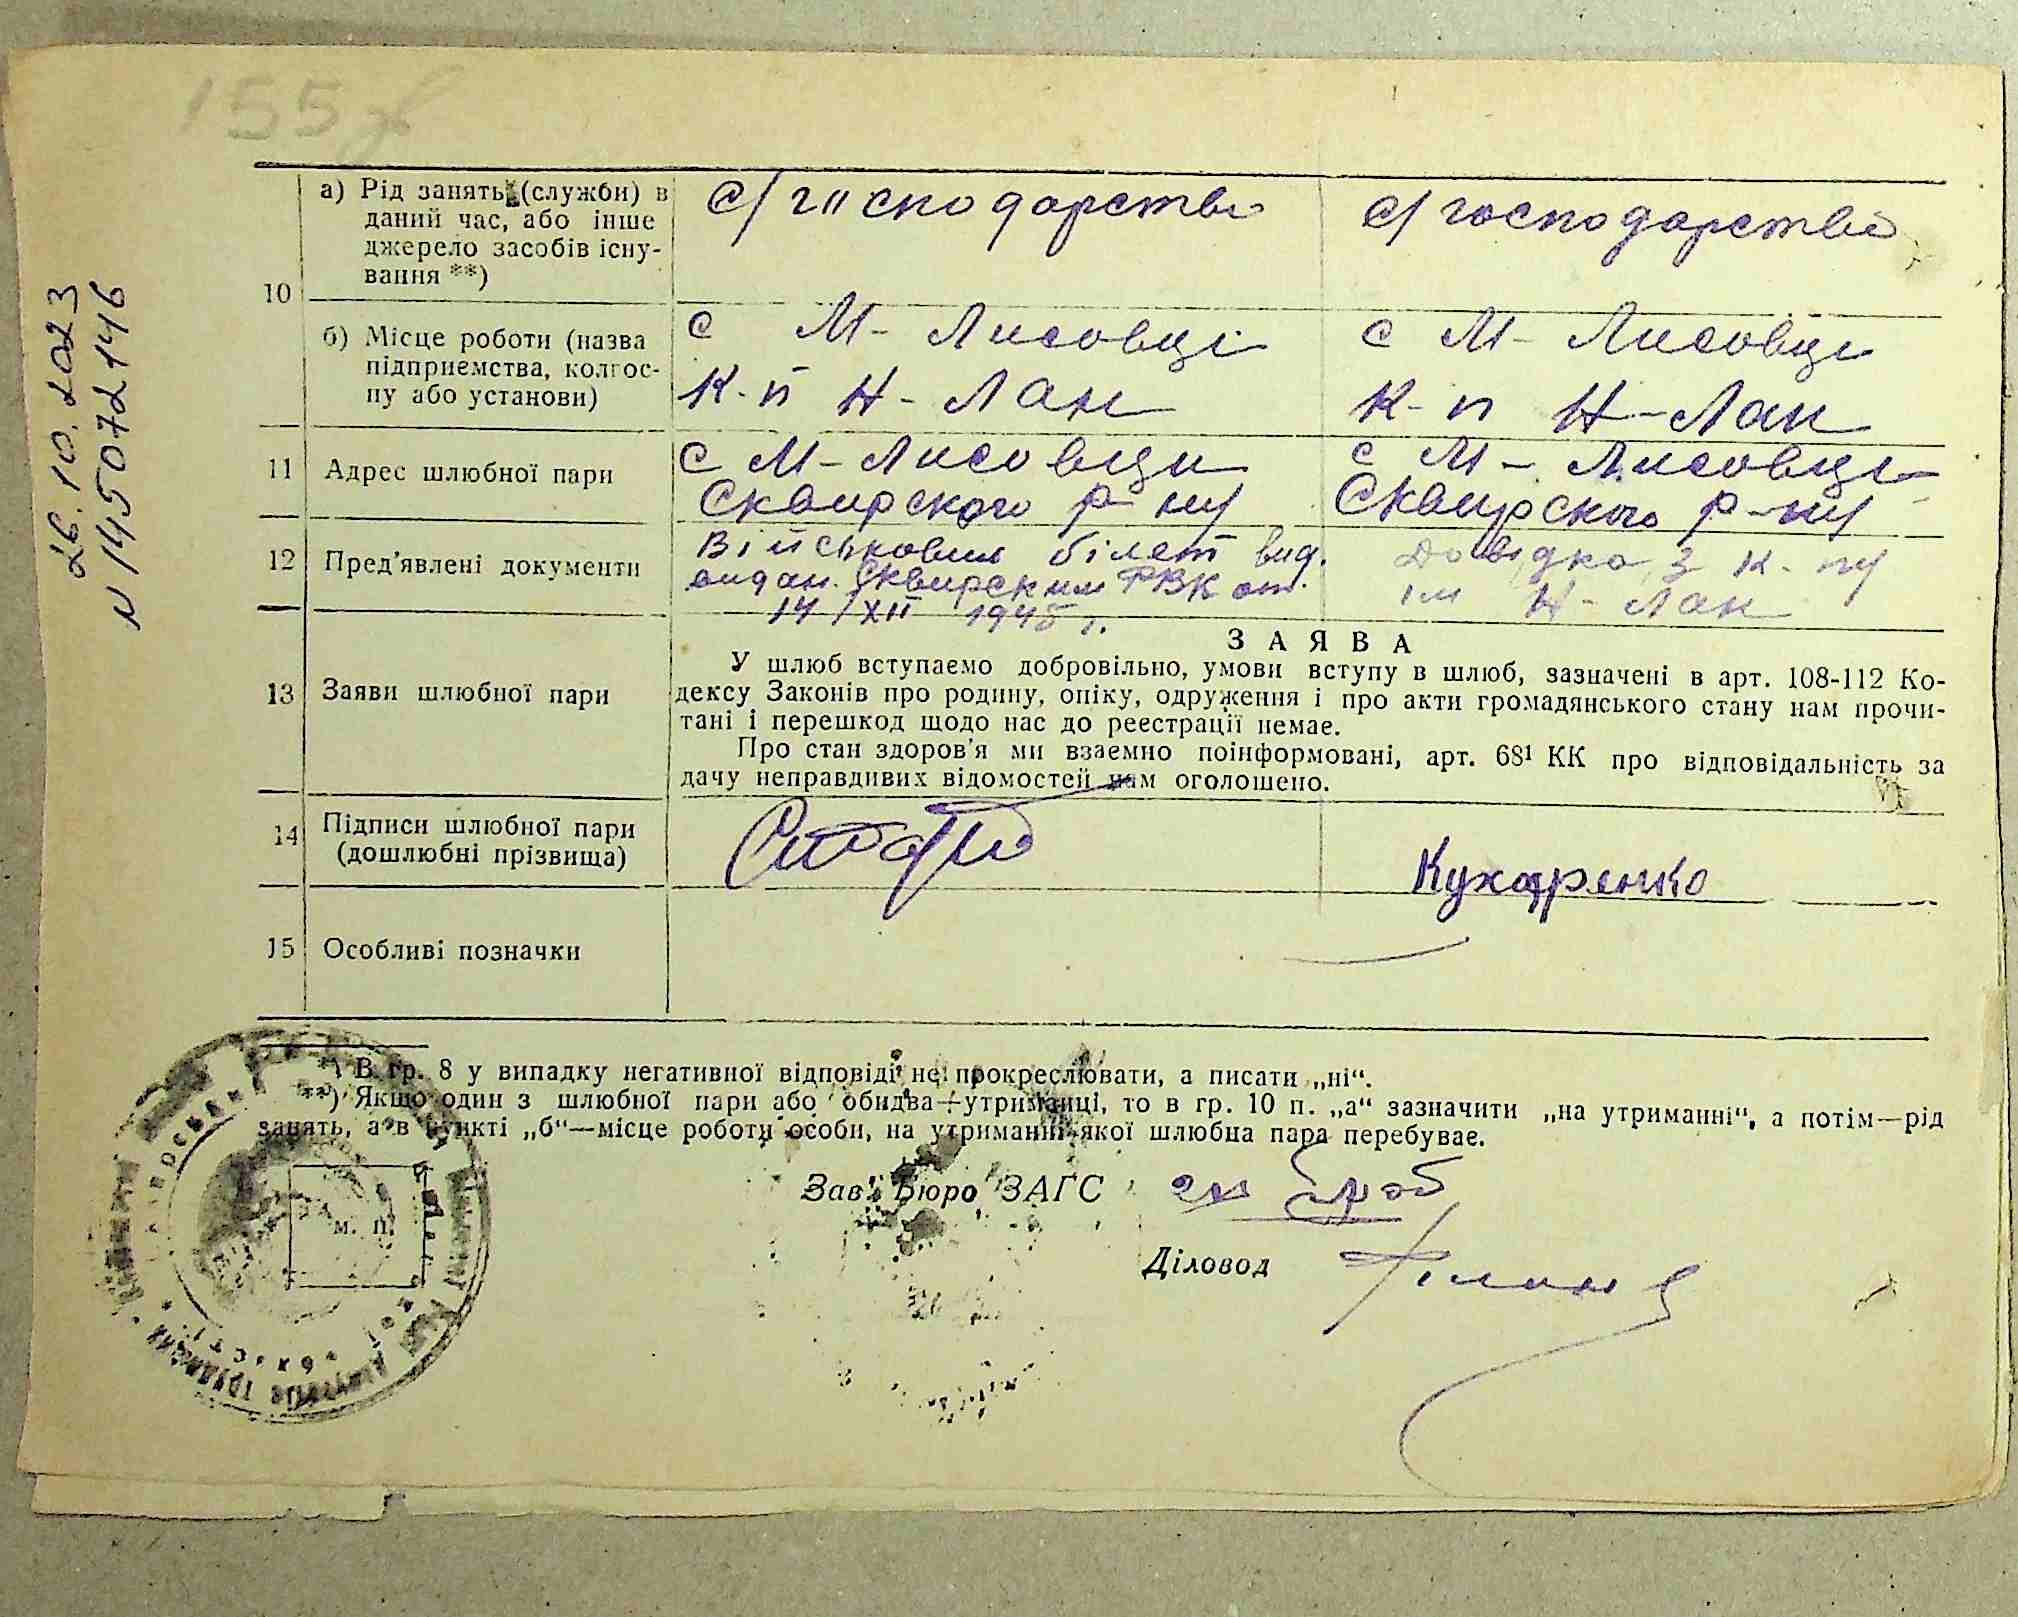 155 зв
26.10.2023
N 145072146
10
а) Рід занять (служби) в
даний час, або інше
джерело засобів існу-
вання **)
с/господарство
с/господарство
б) Місце роботи (назва
підприємства, колгос-
пу або установи)
с М-Лисовці
к-п Н-Лан
с М-Лисовці
к-п Н-Лан
11 Адрес шлюбної пари
с М-Лисовци
Сквирского р-ну
с М-Лисовці
Сквирского р-ну
12 Пред'явлені документи
Військовий білет вид.
видан. Сквирским РВК от.
14/XII 1945 г.
Довідка з к-пу
ім Н-Лан
13 Заяви шлюбної пари
ЗАЯВА
У шлюб вступаємо добровільно, умови вступу в шлюб, зазначені в арт. 108-112 Ко-
дексу Законів про родину, опіку, одруження і про акти громадянського стану нам прочи-
тані і перешкод щодо нас до реєстрації немає.
Про стан здоров'я ми взаємно поінформовані, арт. 68¹ КК про відповідальність за
дачу неправдивих відомостей нам оголошено.
14 Підписи шлюбної пари
(дошлюбні прізвища)
Кухаренко
15 Особливі позначки
*) В гр. 8 у випадку негативної відповіді не прокреслювати, а писати „ні“.
**) Якщо один з шлюбної пари або обидва—утриманці, то в гр. 10 п. „а“ зазначити „на утриманні“, а потім—рід
занять, а в пункті „б“—місце роботи особи, на утриманні якої шлюбна пара перебуває.
Зав. Бюро ЗАГС
м. п.
Діловод